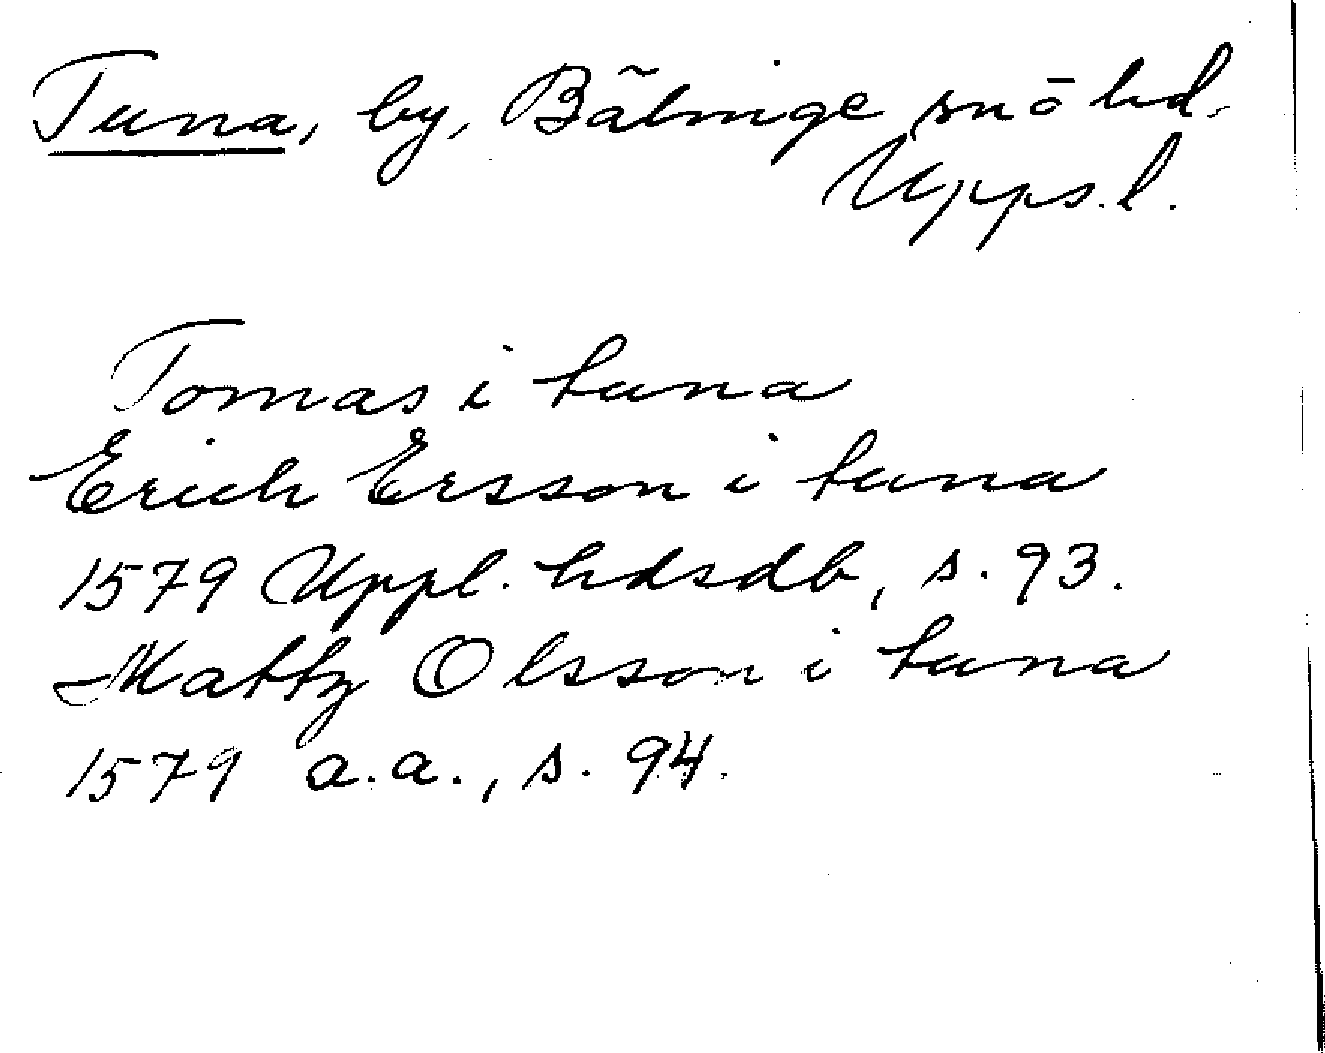 Tuna, by, Bälinge sn o hd.
Upps. l.
Tomas i tuna
Erich Ersson i tuna
1579 Uppl. hdsdb, s. 93.
Mattz Olsson i tuna
1579 a.a., s. 94.